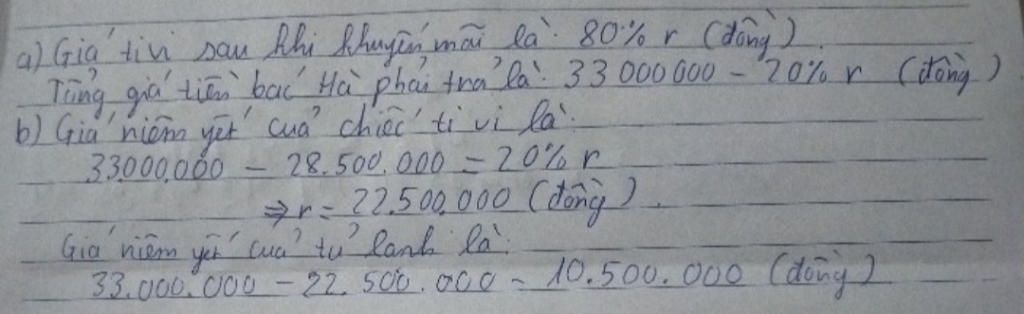 a) Giá tivi sau khi khuyến mãi là: 80% r (đồng)
Tổng giá tiền bác Hà phải trả là: 33 000 000 - 20% r (đồng)
b) Giá niêm yết của chiếc ti vi là:
33.000.000 - 28.500.000 = 20% r
⇒ r = 22.500.000 (đồng).
Giá niêm yết của tủ lạnh là:
33.000.000 - 22.500.000 = 10.500.000 (đồng)